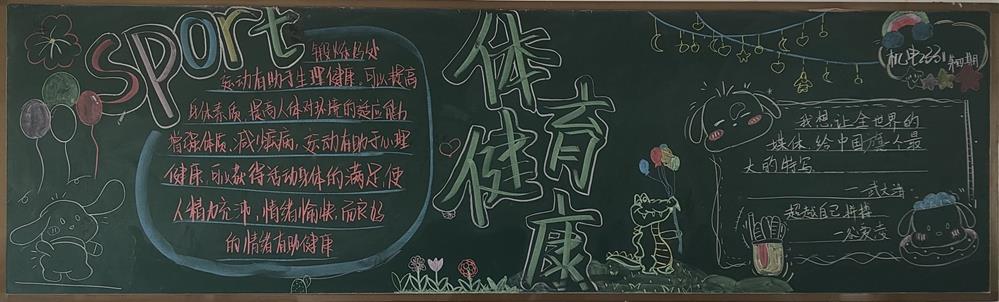 Sport
锻炼的好处
运动有助于生理健康,可以提高
身体素质,提高人体对环境的适应能力
增强体质,减少疾病,运动有助于心理
健康,可以获得活动身体的满足,使
人精力充沛,情绪愉快,而良好
的情绪有助健康
体育
健康
机电2331第四期
我想让全世界的
媒体,给中国队一个最
大的特写
—武大海
超越自己拼搏